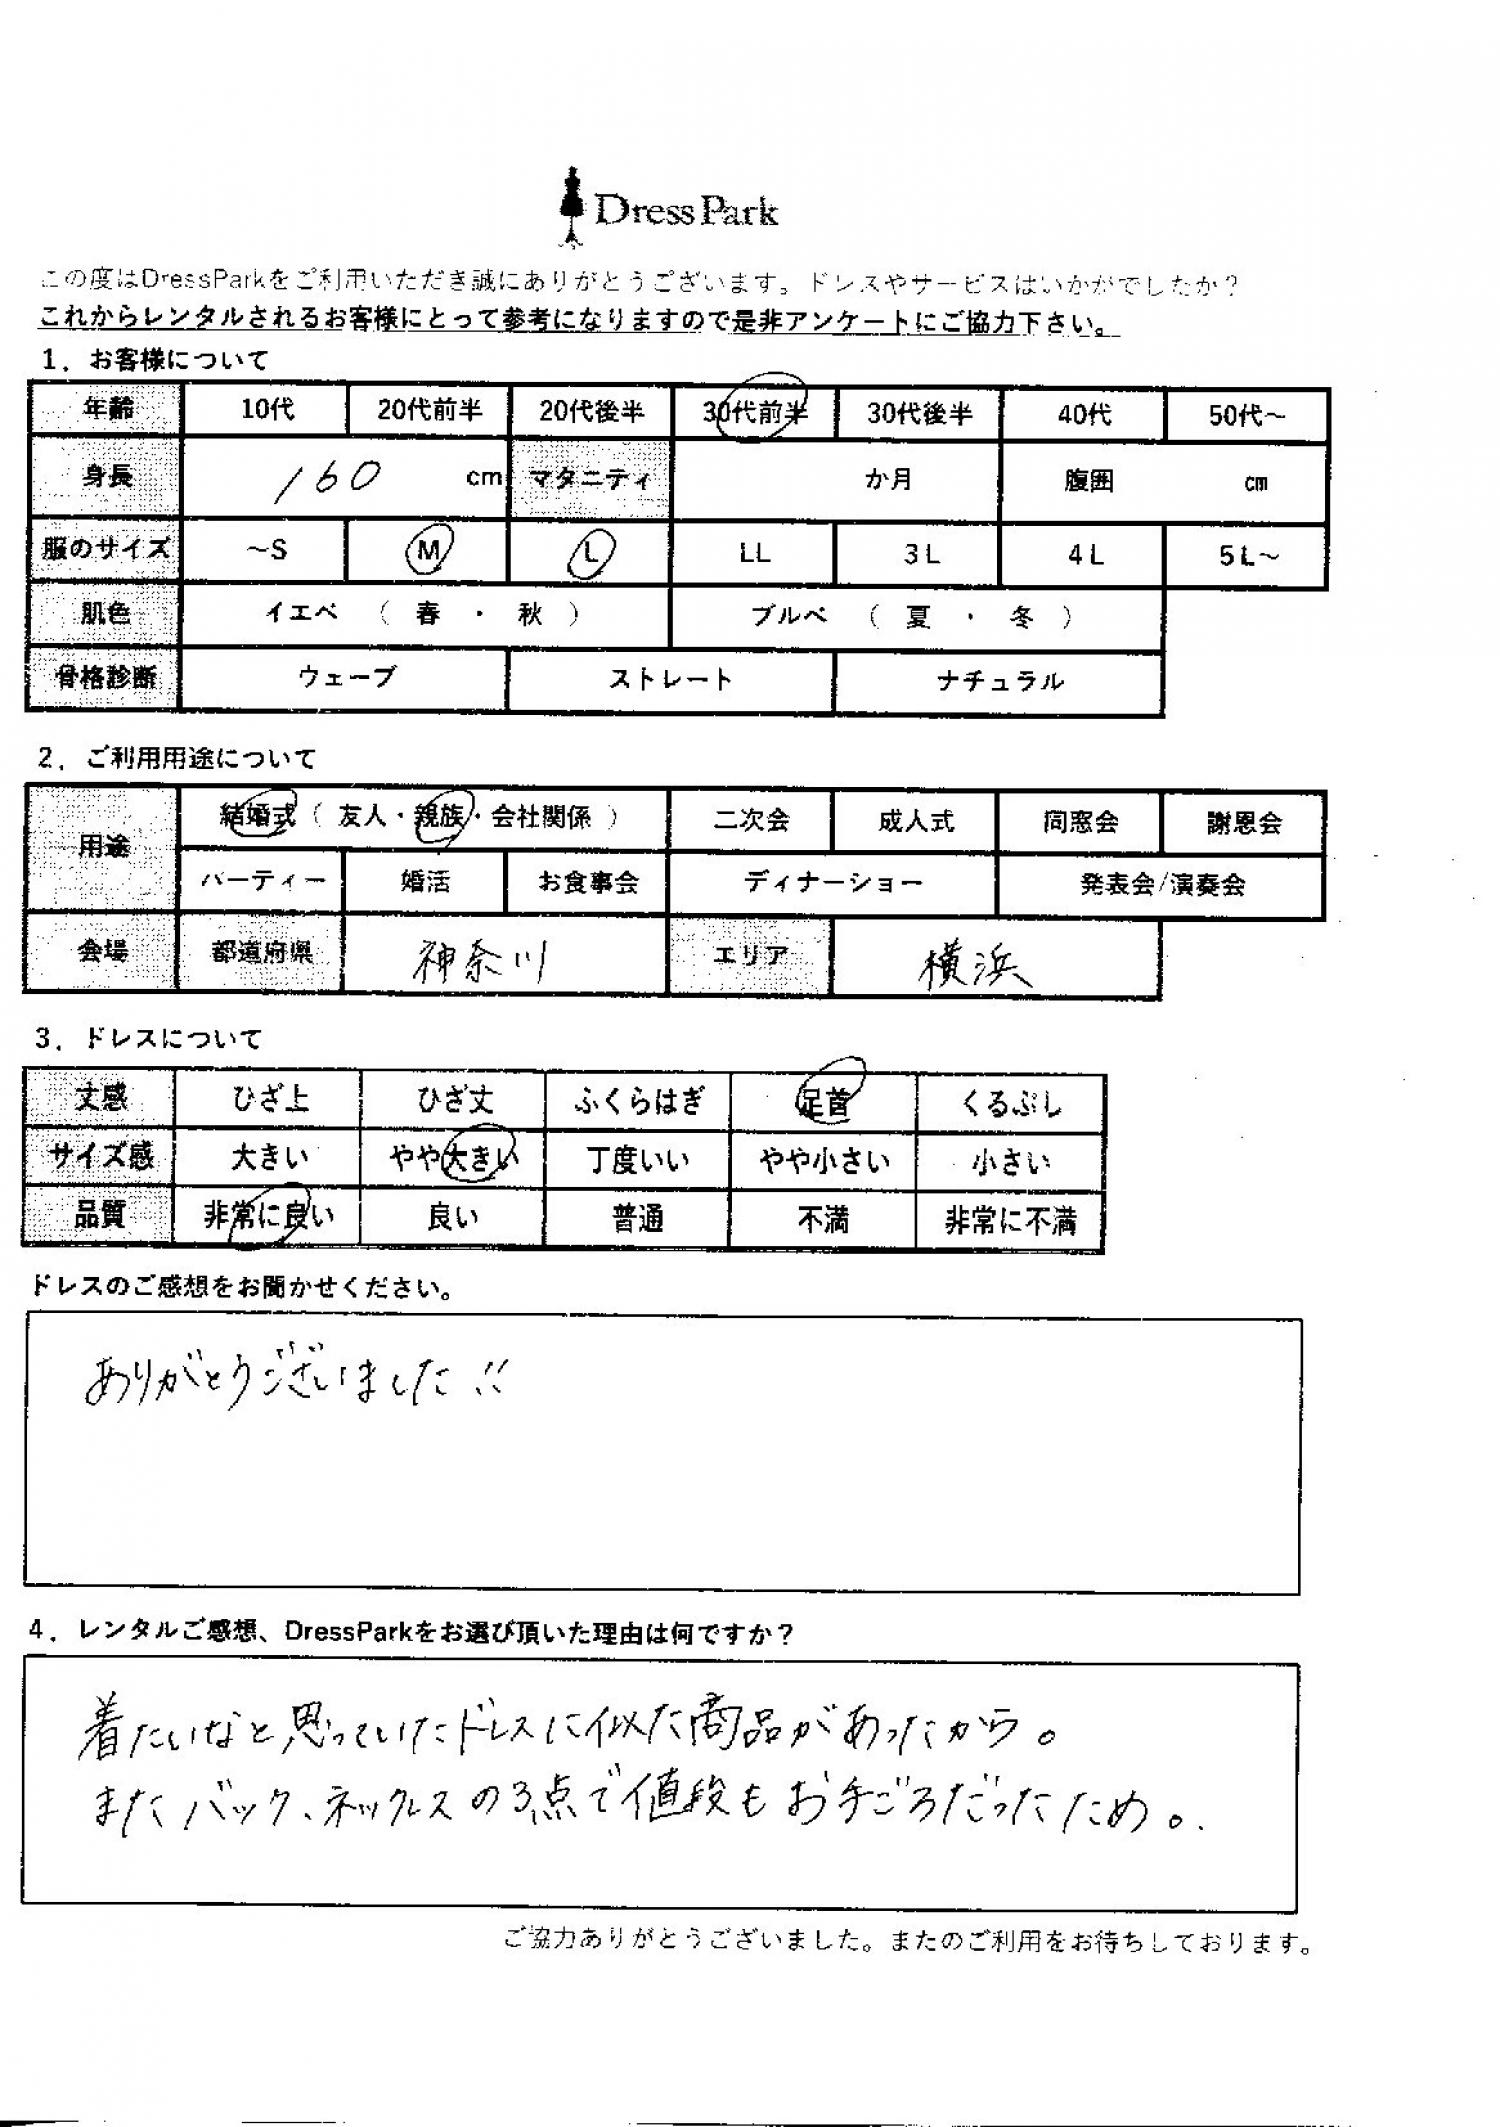 DressPark
この度はDressParkをご利用いただき誠にありがとうございます。ドレスやサービスはいかがでしたか？
これからレンタルされるお客様にとって参考になりますので是非アンケートにご協力下さい。
1．お客様について
年齢 10代 20代前半 20代後半 30代前半 30代後半 40代 50代～
身長 160 cm マタニティ か月 腹囲 cm
服のサイズ ～S M L LL 3L 4L 5L～
肌色 イエベ （ 春 ・ 秋 ） ブルベ （ 夏 ・ 冬 ）
骨格診断 ウェーブ ストレート ナチュラル
2．ご利用用途について
用途 結婚式（ 友人・親族・会社関係 ） 二次会 成人式 同窓会 謝恩会
パーティー 婚活 お食事会 ディナーショー 発表会/演奏会
会場 都道府県 神奈川 エリア 横浜
3．ドレスについて
丈感 ひざ上 ひざ丈 ふくらはぎ 足首 くるぶし
サイズ感 大きい やや大きい 丁度いい やや小さい 小さい
品質 非常に良い 良い 普通 不満 非常に不満
ドレスのご感想をお聞かせください。
ありがとうございました!!
4．レンタルご感想、DressParkをお選び頂いた理由は何ですか？
着たいなと思っていたドレスに似た商品があったから。
またバック、ネックレスの3点で値段もお手ごろだったため。
ご協力ありがとうございました。またのご利用をお待ちしております。